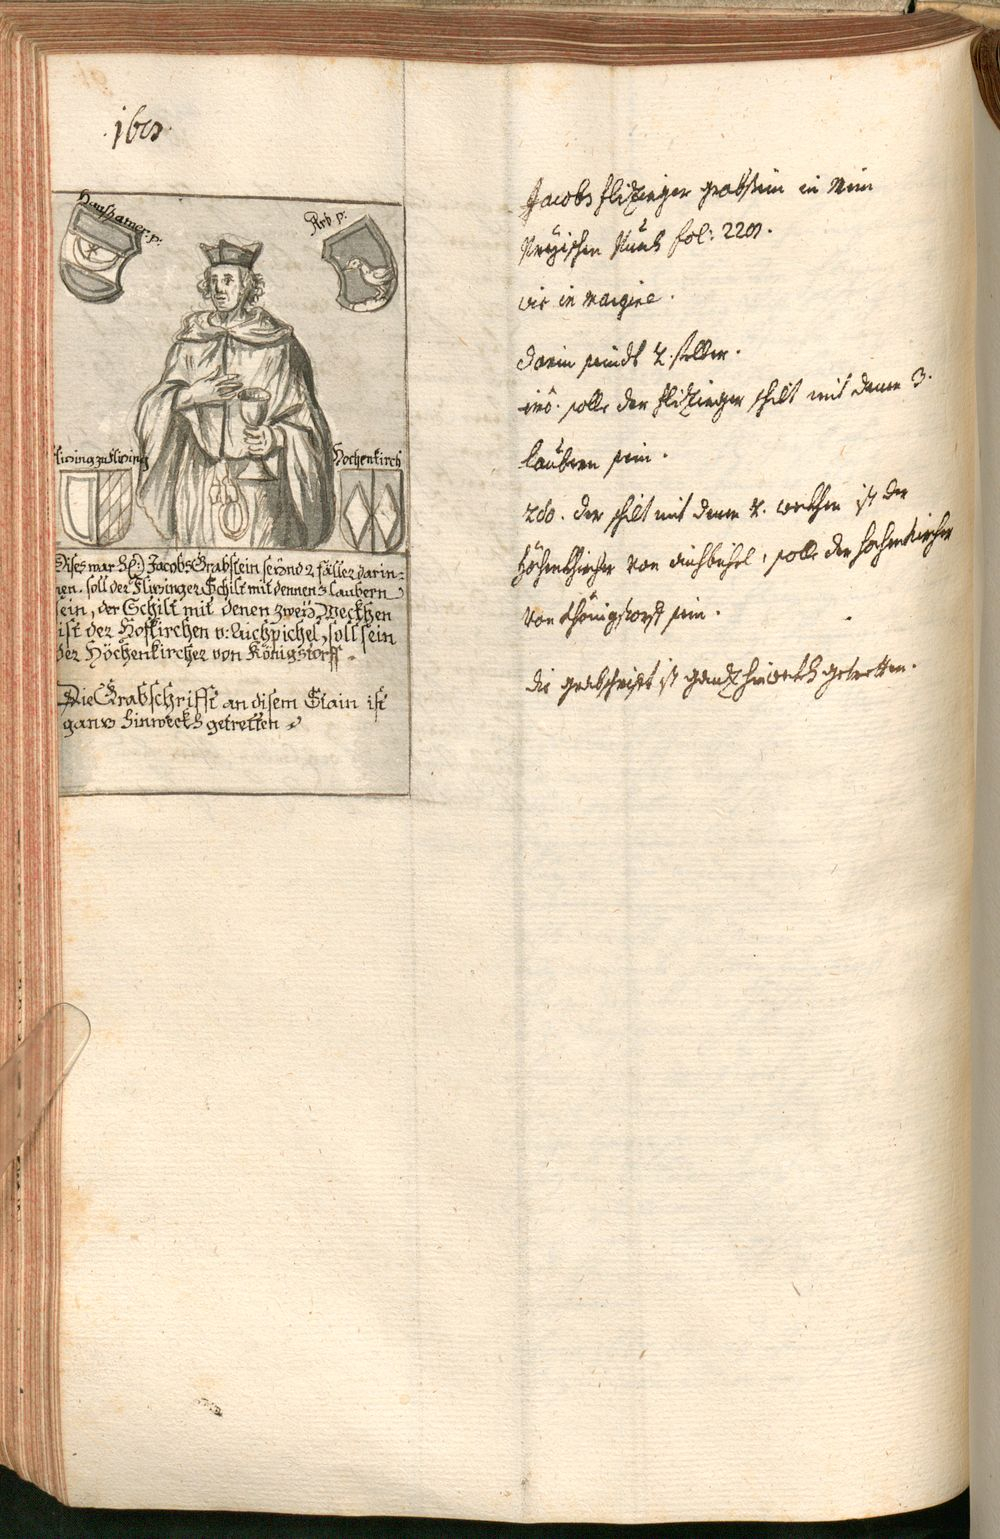 Ramshamer: p:
Arb p:
Flizing zu Flizing
Hochenkirch
Dises war H(:) Jacobs Grabstein seynd 2 fäller darin=
nen. soll der Flizinger Schilt mit dennen 3 laubern
sein, der Schilt mit denen zweÿ Weckhen
ist der Hofkirchen v: Aichpichel, soll sein
der Höchenkircher von Königstorff.
Die Grabschrifft an disem Stain ist
ganz hinweckh getretten
Jacobs Flizinger grabstein in
fol:
vie in margine.
darin seindt 2. fehller.
imo. solle der Flizinger schilt mit denen 3.
laubern sein.
2do. der schilt mit denen 2. weckhen ist der
Höchenkhircher von Aichbühel, solle der Hochenkircher
von Khönigstorff sein.
die grabschrifft ist gantz hinweckh getretten.